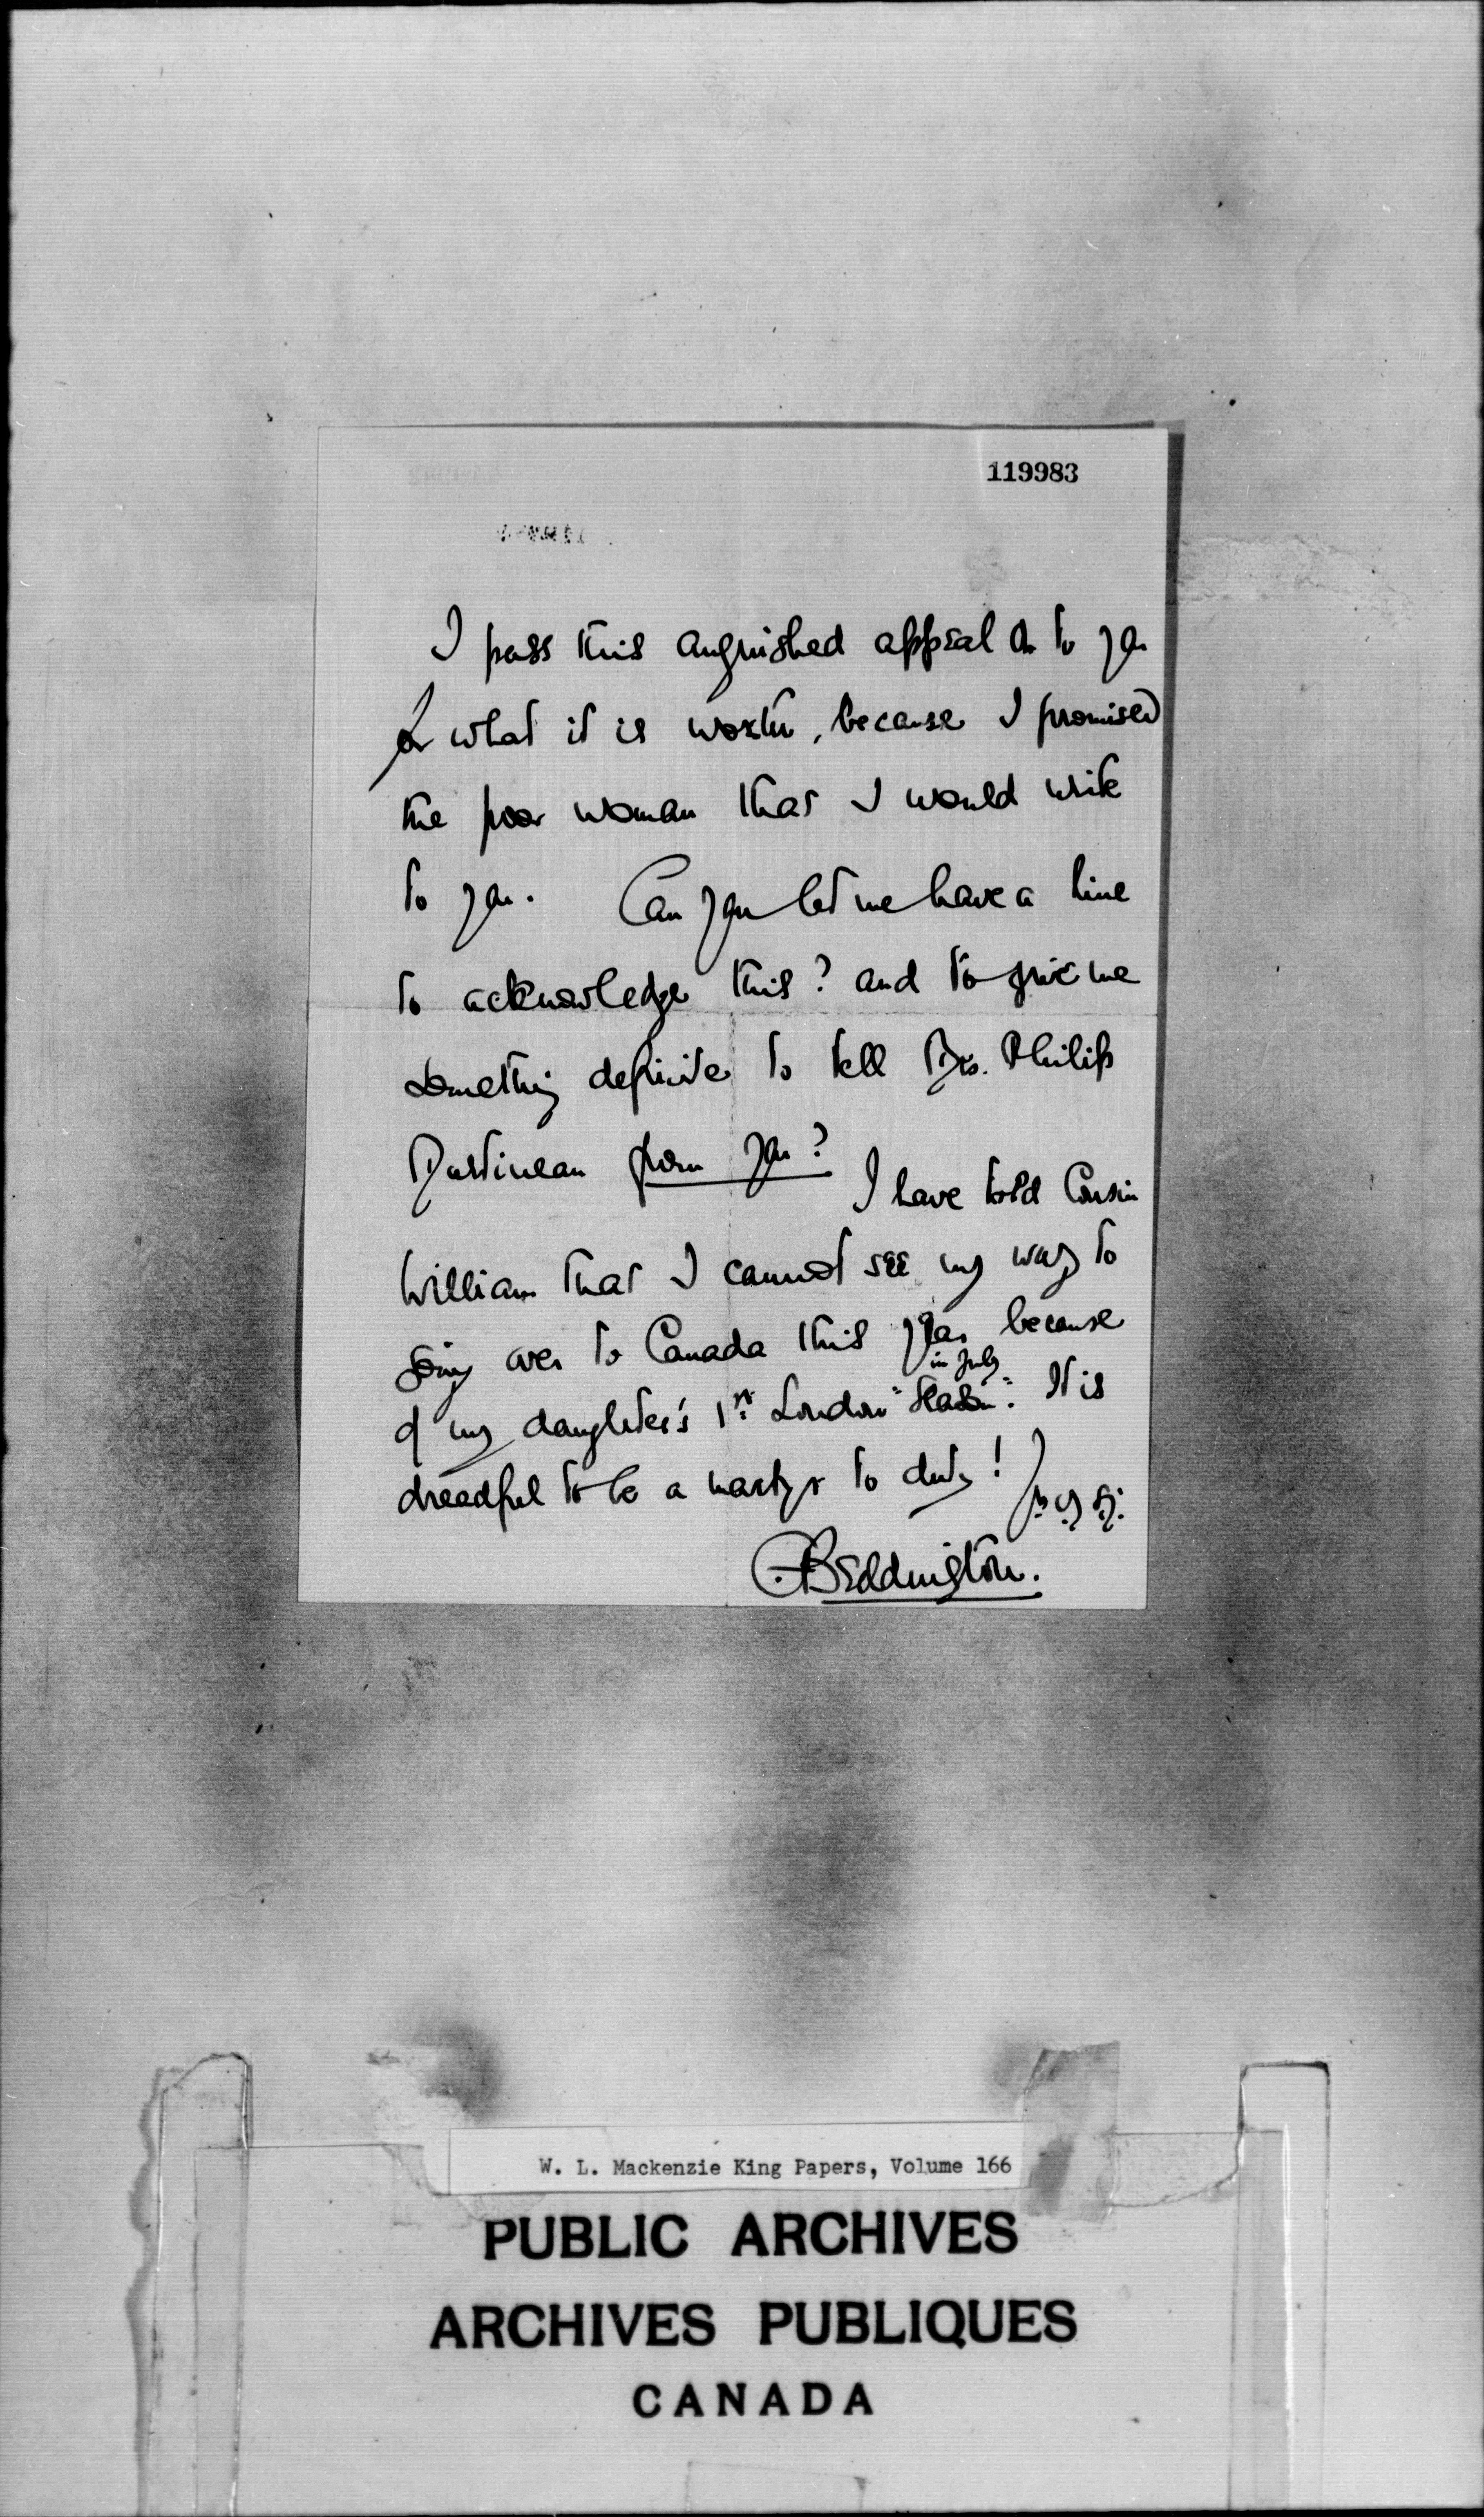 119983
I pass this anguished appeal on to you
for what it is worth, because I promised
the poor woman that I would write
to you. Can you let me have a line
to acknowledge this? and to give me
something definite to tell Mrs. Philip
Martineau from you? I have told Cousin
William that I cannot see my way to
going over to Canada this year because
in July
of my daughter's 1st London "Season". It is
dreadful to be a martyr to duty!
Beddington.
W. L. Mackenzie King Papers, Volume 166
PUBLIC ARCHIVES
ARCHIVES PUBLIQUES
CANADA